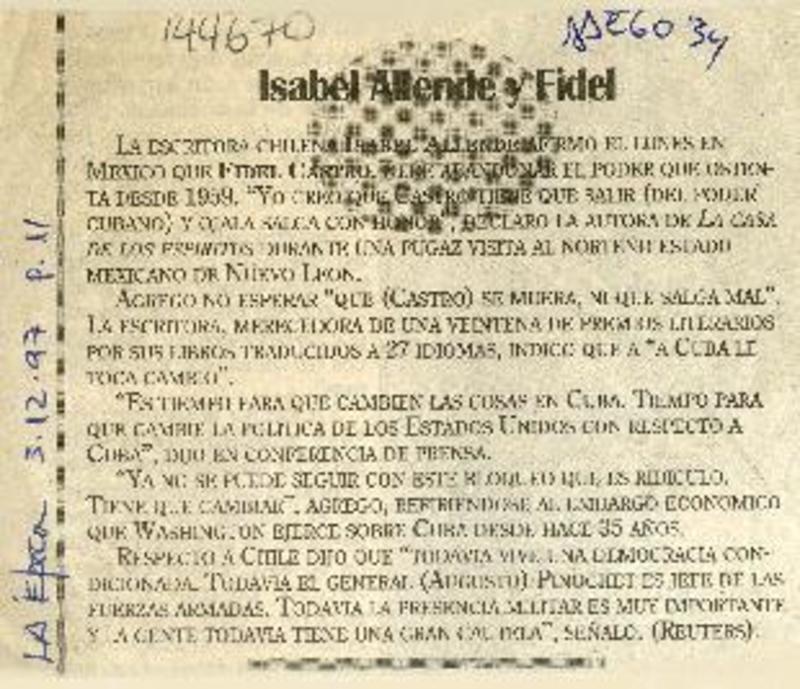 144670
Isabel Allende y Fidel
LA ESCRITORA CHILENA ISABEL ALLENDE AFIRMO EL LUNES EN
MEXICO QUE FIDEL CASTRO DEBE ABANDONAR EL PODER QUE OSTEN-
TA DESDE 1959. "YO CREO QUE CASTRO TIENE QUE SALIR (DEL PODER
CUBANO) Y OJALA SALGA CON HONOR", DECLARO LA AUTORA DE LA CASA
DE LOS ESPIRITUS DURANTE UNA FUGAZ VISITA AL NORTEÑO ESTADO
MEXICANO DE NUEVO LEON.
AGREGO NO ESPERAR "QUE (CASTRO) SE MUERA, NI QUE SALGA MAL".
LA ESCRITORA, MERECEDORA DE UNA VEINTENA DE PREMIOS LITERARIOS
POR SUS LIBROS TRADUCIDOS A 27 IDIOMAS, INDICO QUE A "A CUBA LE
TOCA CAMBIO".
"ES TIEMPO PARA QUE CAMBIEN LAS COSAS EN CUBA. TIEMPO PARA
QUE CAMBIE LA POLITICA DE LOS ESTADOS UNIDOS CON RESPECTO A
CUBA", DIJO EN CONFERENCIA DE PRENSA.
"YA NO SE PUEDE SEGUIR CON ESTE BLOQUEO QUE ES RIDICULO.
TIENE QUE CAMBIAR", AGREGO, REFIRIENDOSE AL EMBARGO ECONOMICO
QUE WASHINGTON EJERCE SOBRE CUBA DESDE HACE 35 AÑOS.
RESPECTO A CHILE DIJO QUE "TODAVIA VIVE UNA DEMOCRACIA CON-
DICIONADA. TODAVIA EL GENERAL (AUGUSTO) PINOCHET ES JEFE DE LAS
FUERZAS ARMADAS. TODAVIA LA PRESENCIA MILITAR ES MUY IMPORTANTE
Y LA GENTE TODAVIA TIENE UNA GRAN CAUTELA", SEÑALO. (REUTERS).
LA Época 3.12.97 p. 11